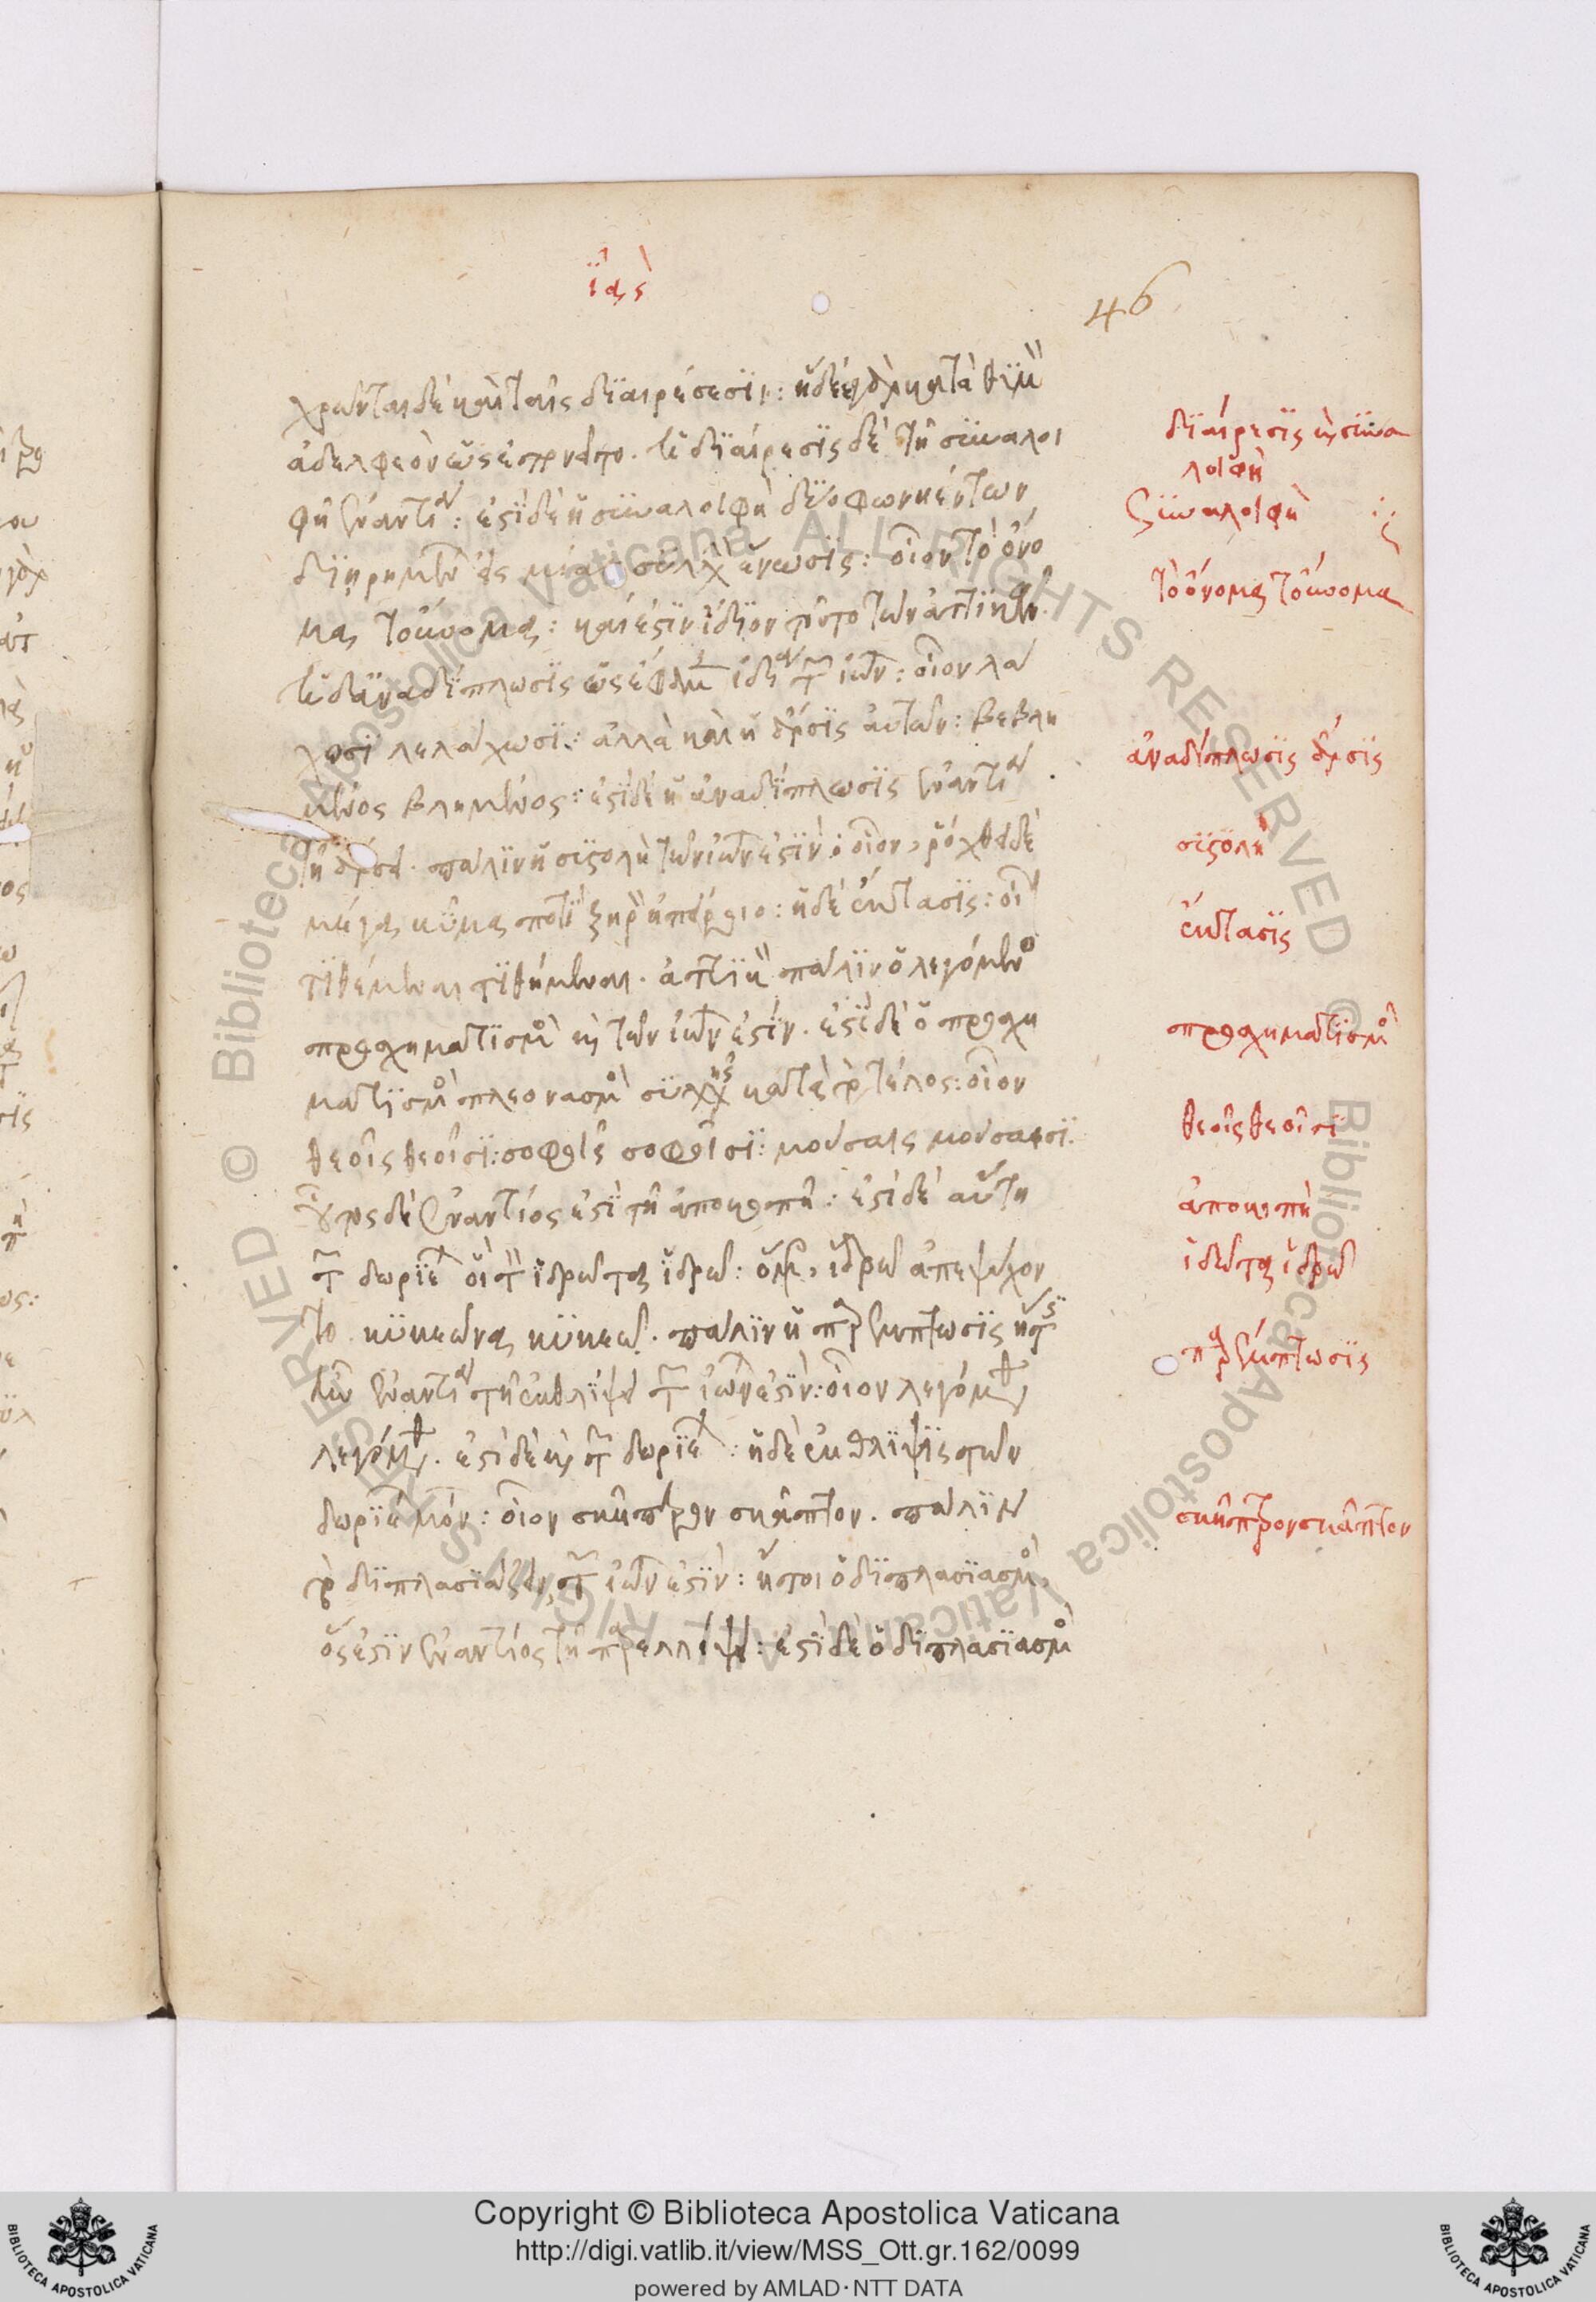 ἰὰς
46
χρῶνται δὲ καὶ ταῖς διαιρέσεσιν: ἡ δὲ εὐθεῖα κατὰ
ἀδελφεὸν ὡς ἐπονεῖτο. ἡ διαίρεσις δὲ τῇ συναλοι
φῇ ἐναντία: ἔστι δὲ ἡ συναλοιφὴ δύο φωνηέντων
διῃρημένων εἰς μίαν συλλαβὴν ἕνωσις: οἷον τὸ ὄνο
μα, τοὔνομα: καὶ ἔστιν ἴδιον τοῦτο τῶν ἀττικῶν.
ἡ δ' ἀναδίπλωσις ὡς ἔφαμεν ἰδία τῶν ἰώνων: οἷον λά
χωσι λελάχωσι: ἀλλὰ καὶ ἡ ἄρσις αὐτῶν: βεβλη
μένος βλημένος: ἔστι δὲ ἡ ἀναδίπλωσις ἐναντία
τῇ ἄρσει. πάλιν ἡ συστολὴ τῶν ἰώνων ἐστὶν: οἷον, ῥόχθει δὲ
μέγα κῦμα ποτὶ ξηρὸν ἠπείροιο: ἡ δὲ ἔκτασις: οἷον
τιθέμεναι τιθήμεναι. ἀττικῶν πάλιν ὁ λεγόμενος
προσχηματισμὸς καὶ τῶν ἰώνων ἐστίν. ἔστι δὲ ὁ προσχη
ματισμὸς πλεονασμὸς συλλαβῆς κατὰ τὸ τέλος: οἷον
θεοῖς θεοῖσι: σοφοῖς σοφοῖσι: μούσαις μούσαισι.
οὗτος δὲ ἐναντίος ἐστὶ τῇ ἀποκοπῇ: ἔστι δὲ αὕτη
τῶν δωριέων οἷον τὸν ἱδρῶτα ἱδρῶ: ὅμηρος, ἱδρῶ ἀπεψύχον
το. κυκεῶνα, κυκεῶ. πάλιν ἡ παρέμπτωσις ἥτις
ἦν ἐναντία τῇ ἐκθλίψει τῶν ἰώνων ἐστὶν: οἷον
ἔστι δὲ καὶ τῶν δωριέων: ἡ δὲ ἔκθλιψις τῶν
δωριέων μόνον: οἷον σκῆπτρον σκᾶπτον. πάλιν
τὸ διπλασιάζειν, τῶν ἰώνων ἐστὶν: ἤτοι ὁ διπλασιασμὸς,
ὅς ἐστιν ἐναντίος τῇ παρελλείψει: ἔστι δὲ ὁ διπλασιασμὸς
διαίρεσις καὶ συνα
λοιφὴ
Συναλοιφὴ
τὸ ὄνομα, τοὔνομα
ἀναδίπλωσις ἄρσις
συστολὴ
ἔκτασις
προσχηματισμὸς
θεοῖς θεοῖσι
ἀποκοπὴ
ἱδρῶτα ἱδρῶ
παρέμπτωσις
σκῆπτρον σκᾶπτον
© Biblioteca Apostolica Vaticana ALL RIGHTS RESERVED
Copyright © Biblioteca Apostolica Vaticana
http://digi.vatlib.it/view/MSS_Ott.gr.162/0099
powered by AMLAD·NTT DATA
BIBLIOTECA APOSTOLICA VATICANA
BIBLIOTECA APOSTOLICA VATICANA